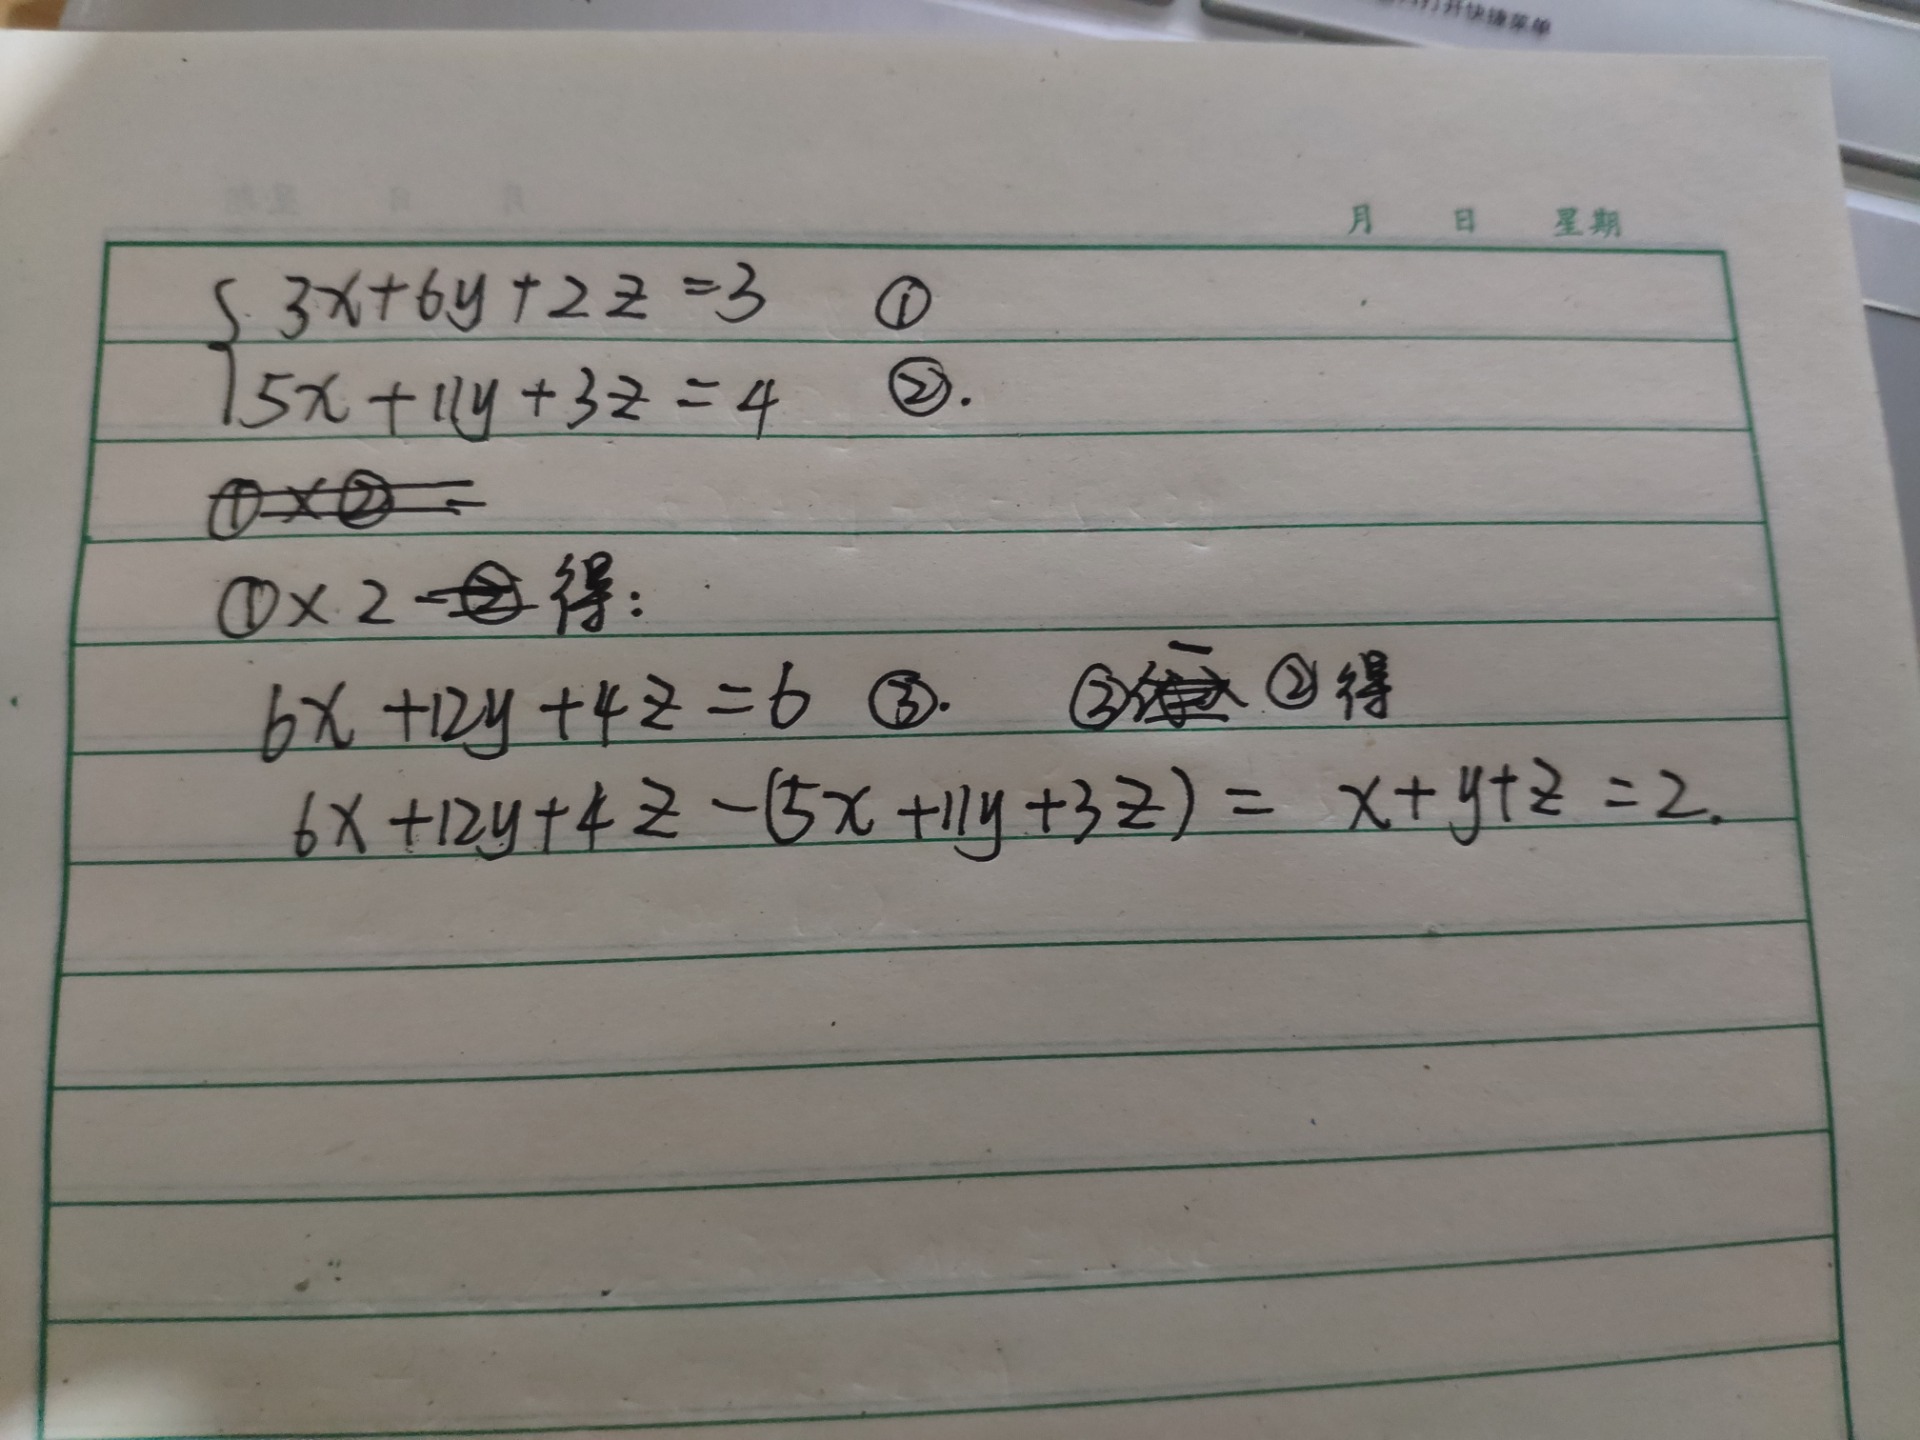 打开快捷菜单
月 日 星期
3x+6y+2z=3 ①
5x+11y+3z=4 ②.
①×②=
①×2-②得:
6x+12y+4z=6 ③. ③- ②得
6x+12y+4z-(5x+11y+3z)= x+y+z=2.